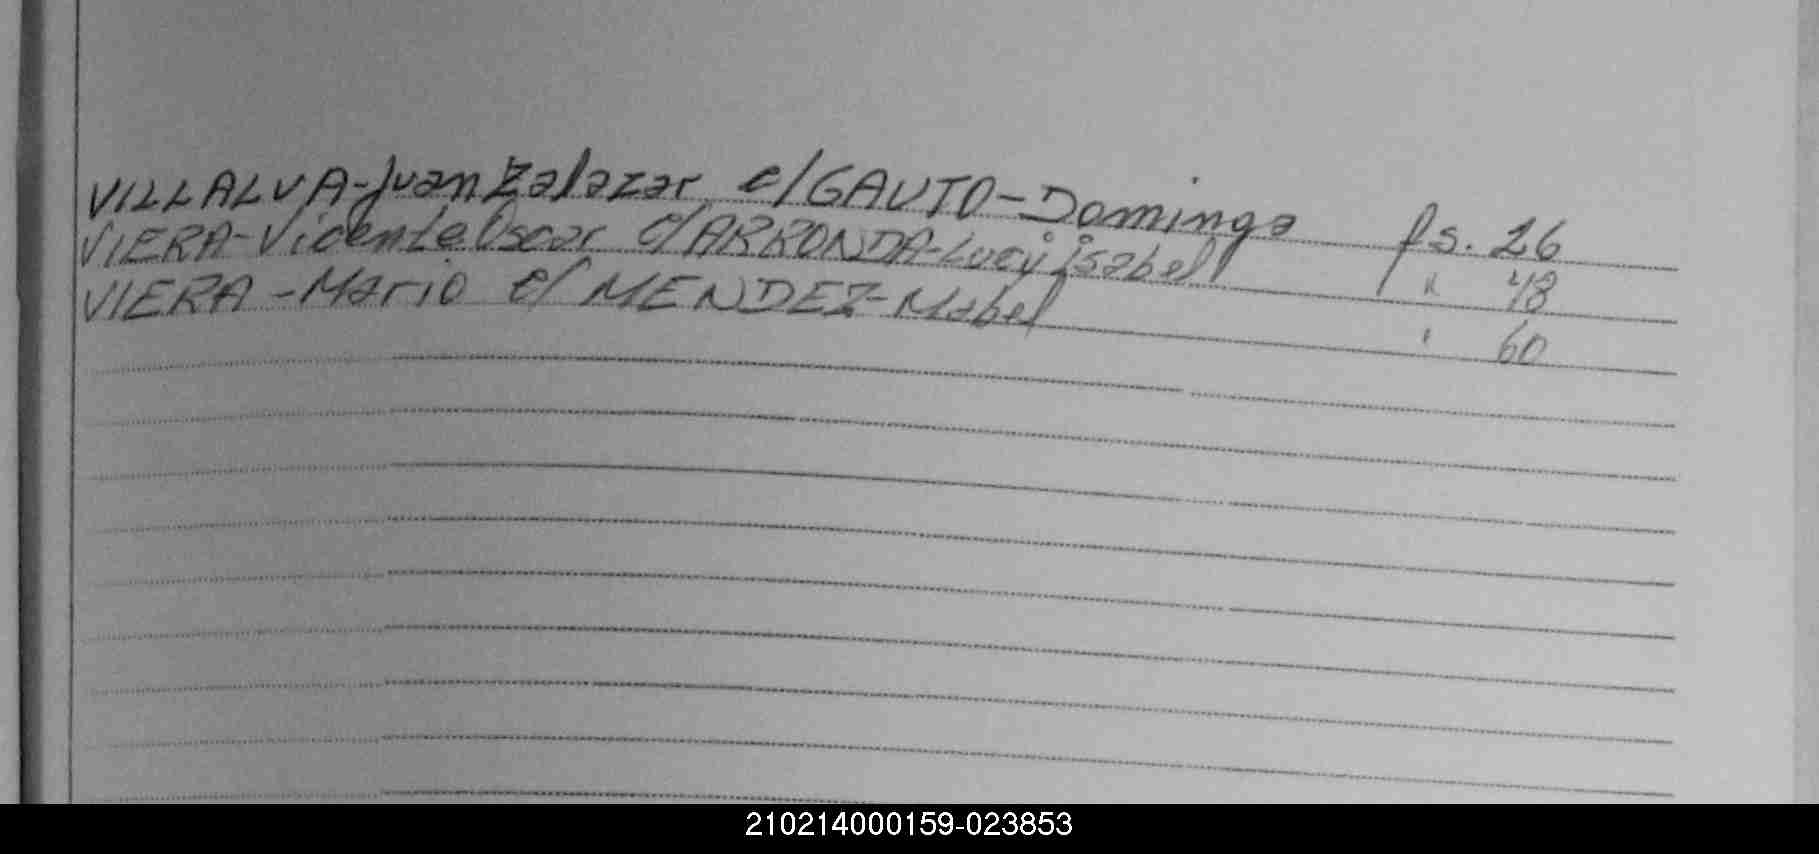 VILLALVA-Juan Zalazar c/GAUTO-Domingo fs. 26
VIERA-Vicente Oscar c/ARRONDA-Lucy isabel " 48
VIERA-Mario c/MENDEZ-Mabel " 60
210214000159-023853